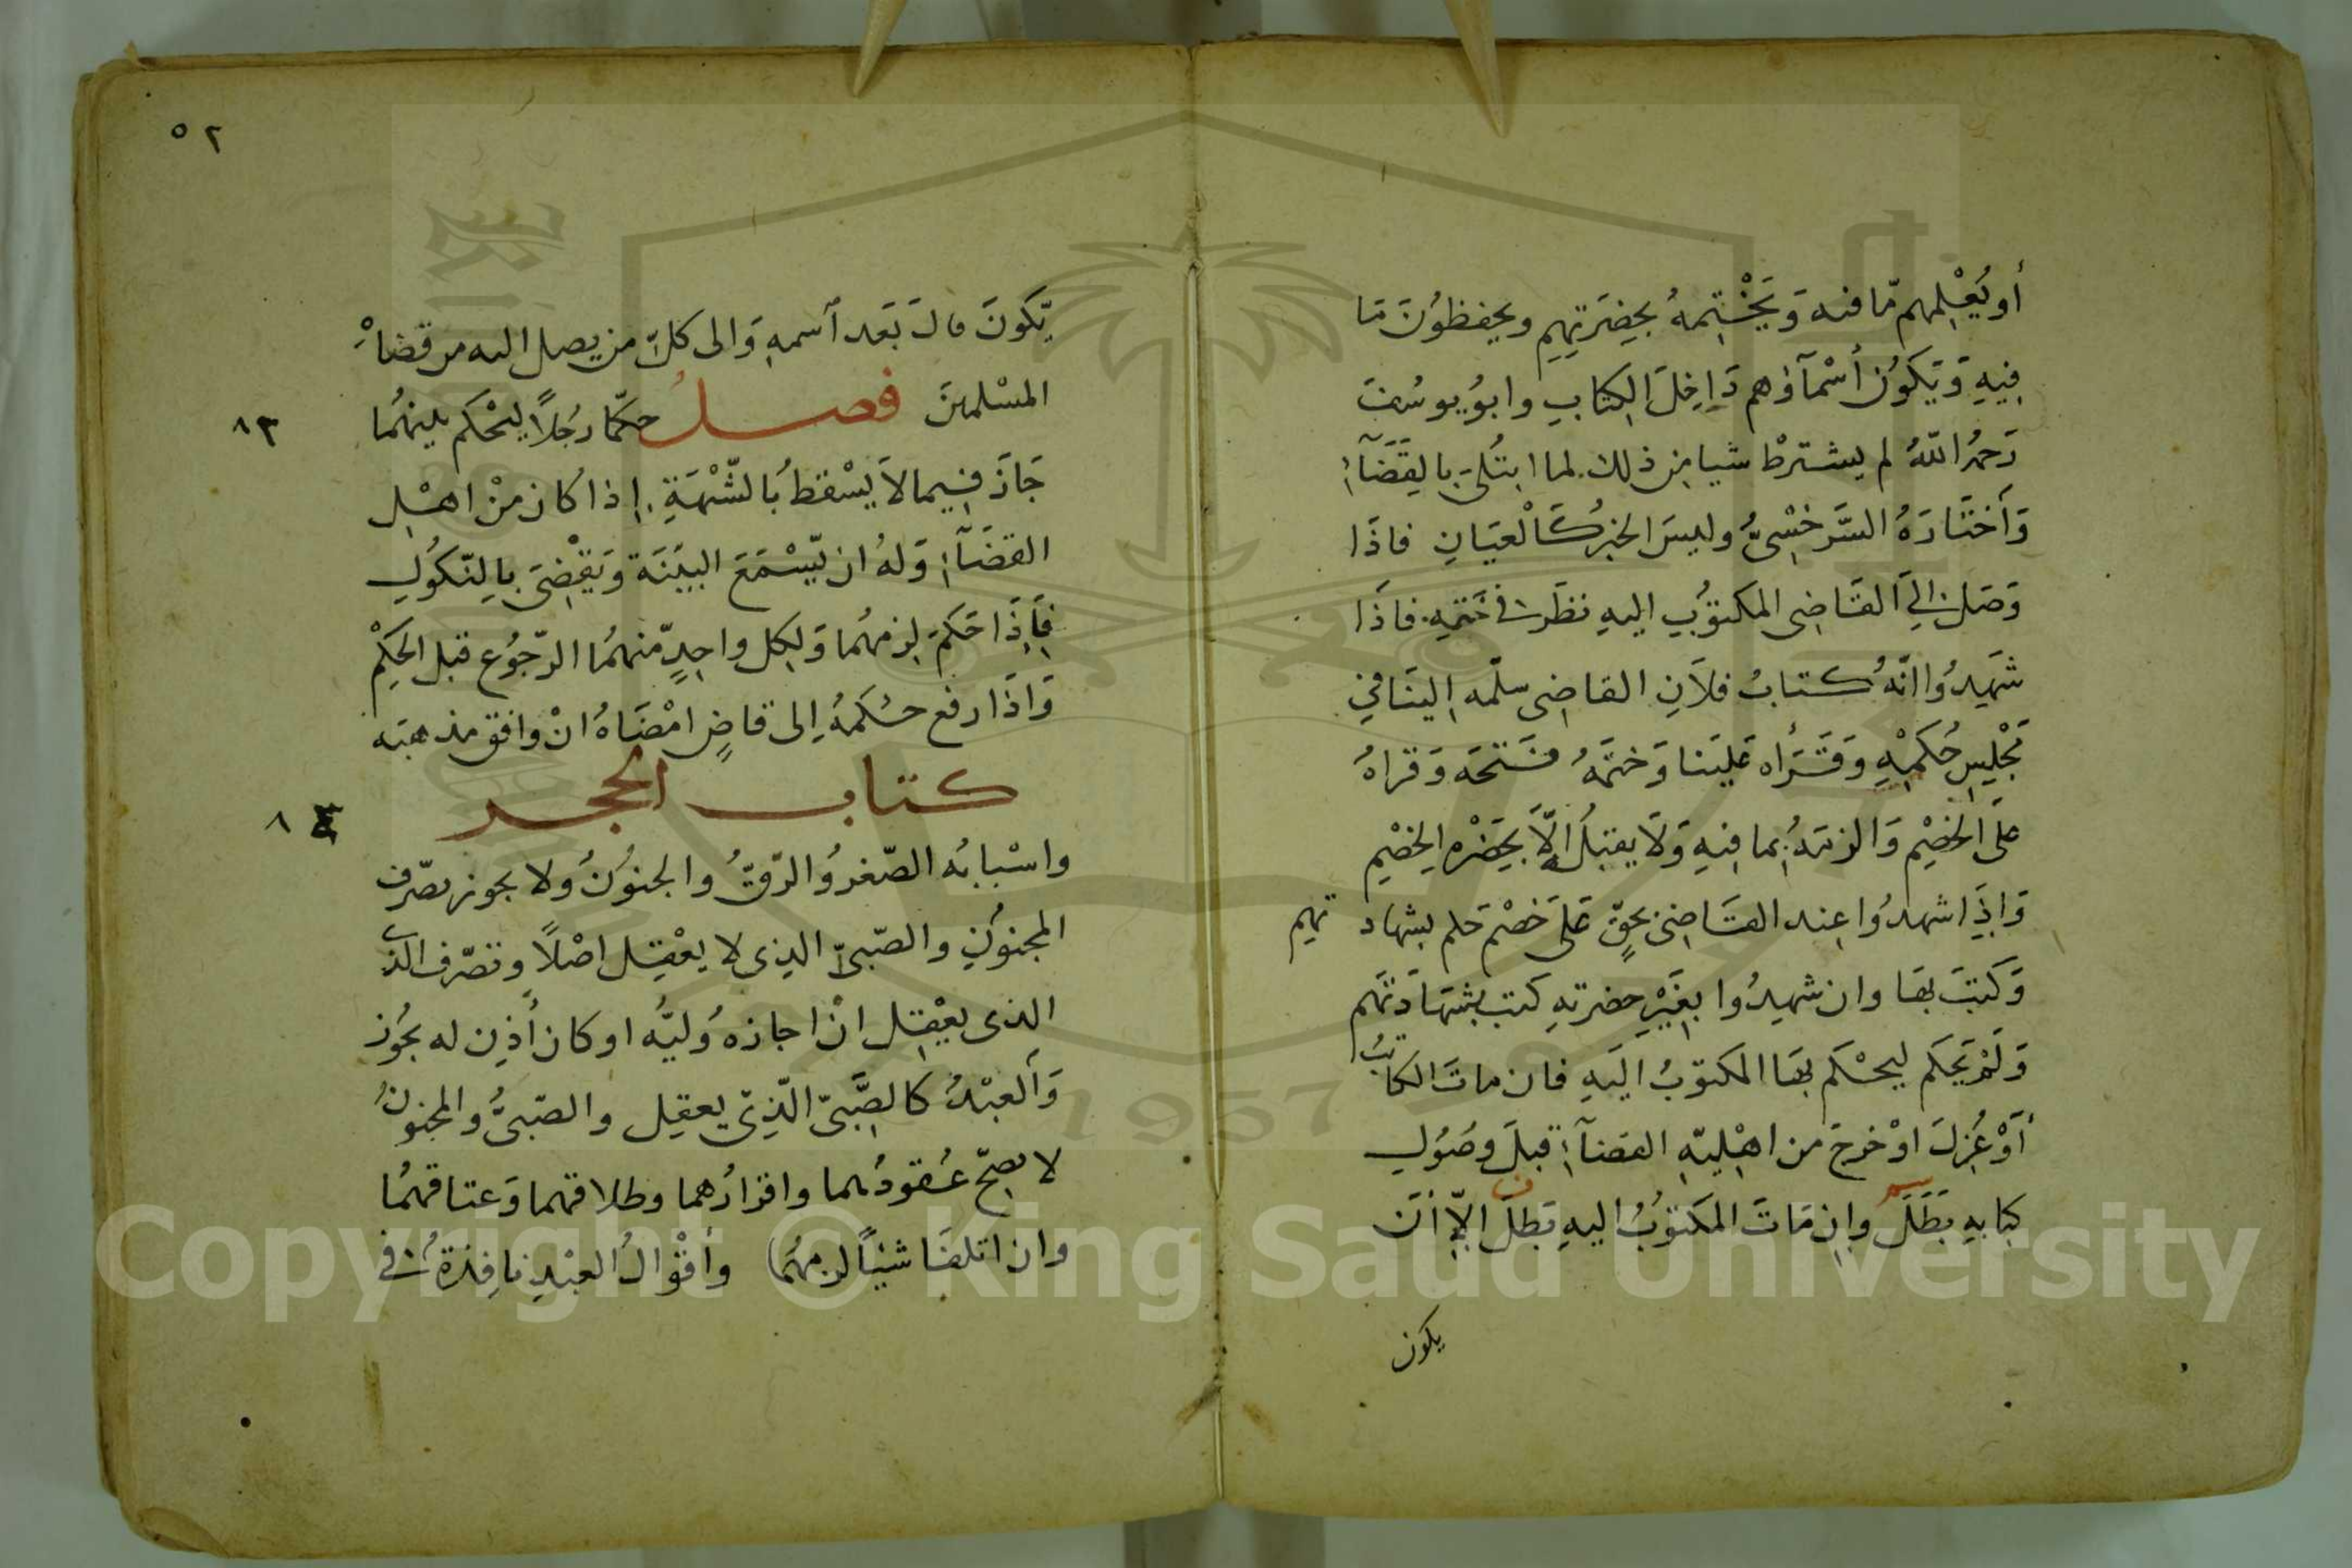 أو يُعْلِمهم مّا فيه وَيَخْتِمهُ بِحِضَرَتِهِم ويحفظوُنَ مَا
فِيهِ وَيَكوُن أسْمآؤهم دَاخِلَ الكِتابِ وابوُ يوسُفَ
رَحمهُ اللّهُ لم يشترطْ شيا مِن ذلِك لما ابتُلىَ بالقَضَآءِ
وَاَختَارَهُ السَّرخسْىُّ وليسَ الخبرُ كَالْعيَانِ فاذَا
وَصَل الِىَ القَاضِى المكتوُبِ اليهِ نظرَ فى خَتمِهِ فاذَا
شَهِدُوا انَّهُ كتابُ فلاَنِ القاضِى سلّمه اِلينَا فِي
مَجْلِسِ حُكمِهِ وَقَرَأه عَليَنا وَختَمَهُ فتَحَه وَقراهُ
علَى الخصْمِ وَالزمَهُ بِما فِيهِ وَلاَ يقبَلُ اِلاَّ بِحَضْرة الِخصْمِ
وَاِذِا شهدُوا عِند القَاضِى بحقٍّ عَلىَ خصْم حَكم بشهاد تهِم
وَكتبَ بهَا وان شهِدُوا بِغَيْرِ حضرتهِ كتب بشهَادَتهَم
وَلَمْ يَحكم ليحْكم بهَا المكتوبُ اليَهِ فان ماتَ الكاتبُ
أَوْ عُزِلَ اوْ خرجَ من اهْلِيّهِ القضآءِ قبلَ وصُوُلِ
كِتابهِ بَطَلَ وانِ مَاتَ المكتوُبُ اليهِ بَطلَ الِاّ أنَ
يكون
٥٢
يّكوُنَ قالَ بَعَد اَسمهِ وَالى كلّ من يصل اليه من قضاةِ
المسْلمينَ فصل حكّما رجُلاً ليحْكم بينهُما
٨٣
جَازَ فِيمالاَ يَسْقطُ بُالشّبْهَةِ اِذا كان مِنْ اهْلِ
القضَآءِ وَلهُ ان يّسْمَعَ البيَنَة وَيَقْضِىَ بِالنّكوُلِ
فَاِذَا حَكمَ لِزمهُما وَلِكل واحِدٍ مّنهمُا الرّجوُع قبل الحكِمْ
وَاذَا رفع حُكمَهُ اِلى قاضٍ امْضَاهُ انْ وافق مذهبَه
كتاب الحجر
٨٤
واسْبابُه الصّغرُ وُالرّقُّ والجنوُنُ ولا يجوز تصّرف
المجنوُنِ والصّبىّ الذِى لا يعْقِل اصْلاً وتصّرف الذى
الذى يعْقِل انْ اجازهُ وَليُّه اوكان أذِن له يجُوز
وَاَلعبْدُ كالصَّبىّ الّذِىّ يعقِل والصّبىُّ والمجنونُ
لا يصِحّ عُقودُهما واقرارُهما وطلاقهما وَعتاقهمُا
وان اتلفَا شيْاً لزمهُمَا وأقْوالُ العبْدِ نافِذةٌ فى
Copyright © King Saud University
1957